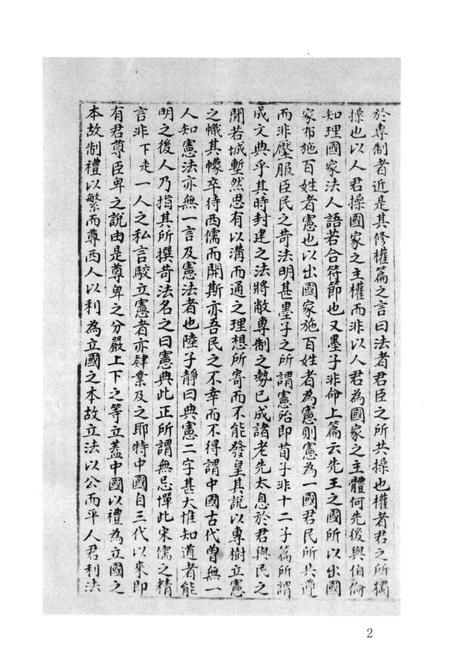 於專制者近是其修權篇之言曰法者君臣之所共操也權者君之所獨
操也以人君操國家之主權而非以人君為國家之主體何先後與伯倫
知理國家法人語若合符節也又墨子非命上篇云先王之國所以出國
家布施百姓者憲也以出國家施百姓者為憲則憲為一國君民所共遵
而非壓服臣民之苛法明甚墨子之所謂憲殆即荀子非十二子篇所謂
成文典乎其時封建之法將敝專制之勢已成諸老先太息於君與民之
間若城塹然思有以溝而通之理想所寄而不能發皇其說以專樹立憲
之幟其幪卒待西儒而開斯亦吾民之不幸而不得謂中國古代曾無一
人知憲法亦無一言及憲法者也陸子靜曰典憲二字甚大惟知道者能
明之後人乃指其所撰苛法名之曰憲典此正所謂無忌憚此宋儒之精
言非下走一人之私言駁立憲者亦肄業及之耶特中國自三代以來即
有君尊臣卑之說由是尊卑之分嚴上下之等立蓋中國以禮為立國之
本故制禮以繁而尊西人以利為立國之本故立法以公而平人君利法
2